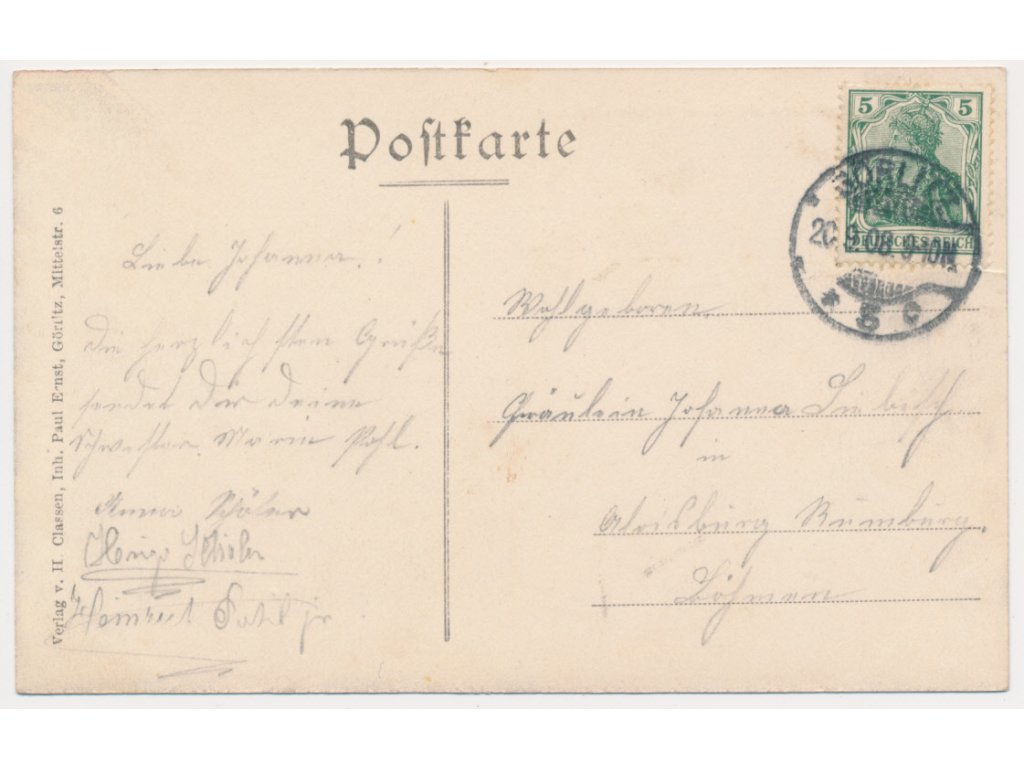 Postkarte
5 5
DEUTSCHES REICH
GÖRLITZ
20.9.08.9-10N.
* 5 c
Liebe Johanna!
die herzlichsten Grüße
sendet Dir Deine
Schwester Marie Pohl.
Anna
Hugo
Pohl jr
Wohlgeboren
Fräulein Johanna Liebisch
in
Rumburg
Böhmen
Verlag v. H Classen, Inh. Paul Ernst, Görlitz, Mittelstr. 6